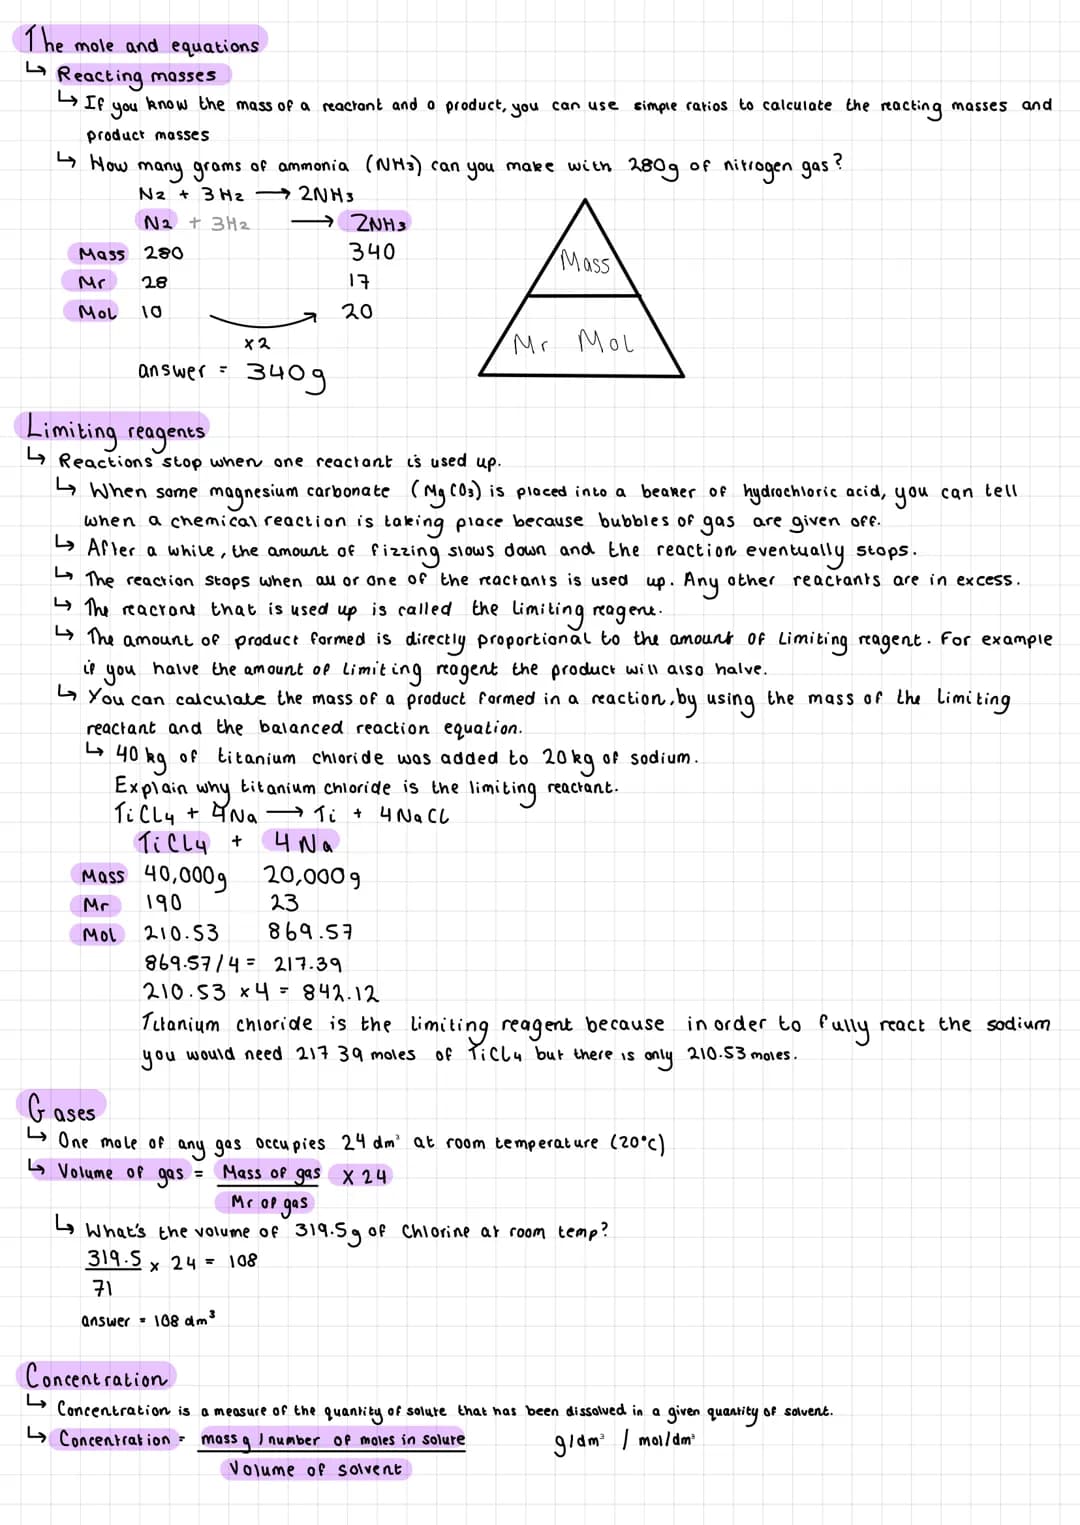 The mole and equations
↳ Reacting masses
↳ If you know the mass of a reactant and a product, you can use simple ratios to calculate the reacting masses and
product masses
↳ How many grams of ammonia (NH3) can you make with 280g of nitrogen gas?
N2 + 3H2 → 2NH3
N2 + 3H2 → 2NH3
Mass 280 340
Mr 28 17
Mol 10 20
x2
answer = 340g
Mass
Mr Mol
Limiting reagents
↳ Reactions stop when one reactant is used up.
↳ When some magnesium carbonate (MgCO3) is placed into a beaker of hydrochloric acid, you can tell
when a chemical reaction is taking place because bubbles of gas are given off.
↳ After a while, the amount of fizzing slows down and the reaction eventually stops.
↳ The reaction stops when all or one of the reactants is used up. Any other reactants are in excess.
↳ The reactant that is used up is called the limiting reagent.
↳ The amount of product formed is directly proportional to the amount of limiting reagent. For example
if you halve the amount of limiting reagent the product will also halve.
↳ You can calculate the mass of a product formed in a reaction, by using the mass of the limiting
reactant and the balanced reaction equation.
↳ 40 kg of titanium chloride was added to 20kg of sodium.
Explain why titanium chloride is the limiting reactant.
TiCl4 + 4Na → Ti + 4NaCl
TiCl4 + 4Na
Mass 40,000g 20,000g
Mr 190 23
Mol 210.53 869.57
869.57/4 = 217.39
210.53 x4 = 842.12
Titanium chloride is the limiting reagent because in order to fully react the sodium
you would need 217.39 moles of TiCl4 but there is only 210.53 moles.
Gases
↳ One mole of any gas occupies 24 dm³ at room temperature (20°C)
↳ Volume of gas = Mass of gas x 24
Mr of gas
↳ What's the volume of 319.5g of Chlorine at room temp?
319.5 x 24 = 108
71
answer = 108 dm³
Concentration
↳ Concentration is a measure of the quantity of solute that has been dissolved in a given quantity of solvent.
↳ Concentration = mass g / number of moles in solute g/dm³ / mol/dm³
Volume of solvent